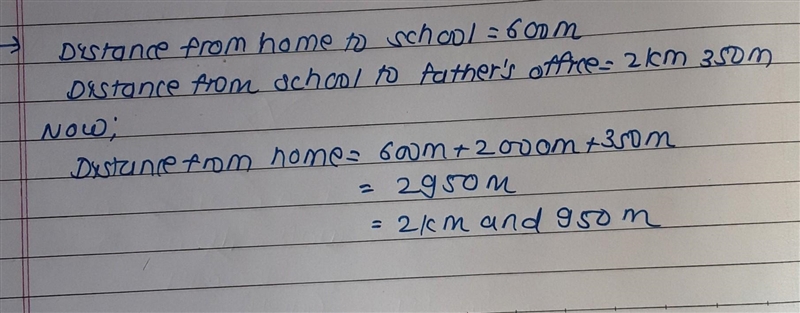 → Distance from home to school = 600m
Distance from school to father's office = 2km 350m
Now;
Distance from home = 600m + 2000m + 350m
= 2950m
= 2km and 950 m